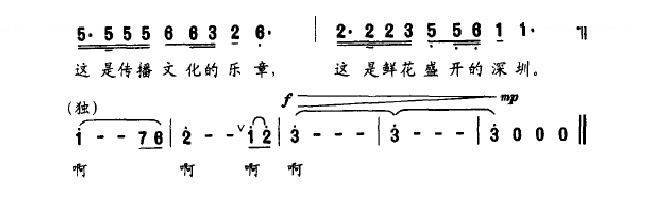 5· 5 5 5 6 6 3 2 6· | 2· 2 2 3 5 5 6 1 1·
这是传播文化的乐章, 这是鲜花盛开的深圳。
(独) f mp
1 - - 7 6 | 2 - - 1 2 | 3 - - - | 3 - - - | 3 0 0 0 ‖
啊 啊 啊 啊